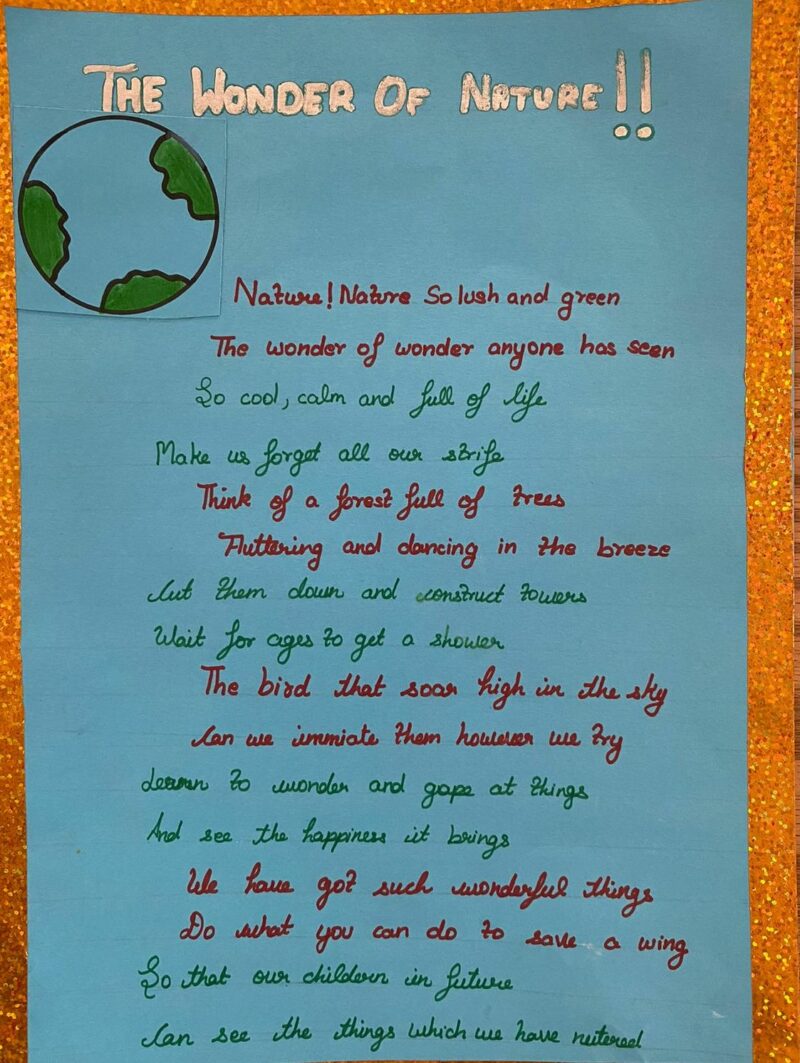 THE WONDER OF NATURE!!
Nature! Nature So lush and green
The wonder of wonder anyone has seen
So cool, calm and full of life
Make us forget all our strife
Think of a forest full of trees
Fluttering and dancing in the breeze
Cut them down and construct towers
Wait for ages to get a shower
The bird that soar high in the sky
Can we immiate them however we try
Learn to wonder and gape at things
And see the happiness it brings
We have got such wonderful things
Do what you can do to save a wing
So that our childern in future
Can see the things which we have nutered